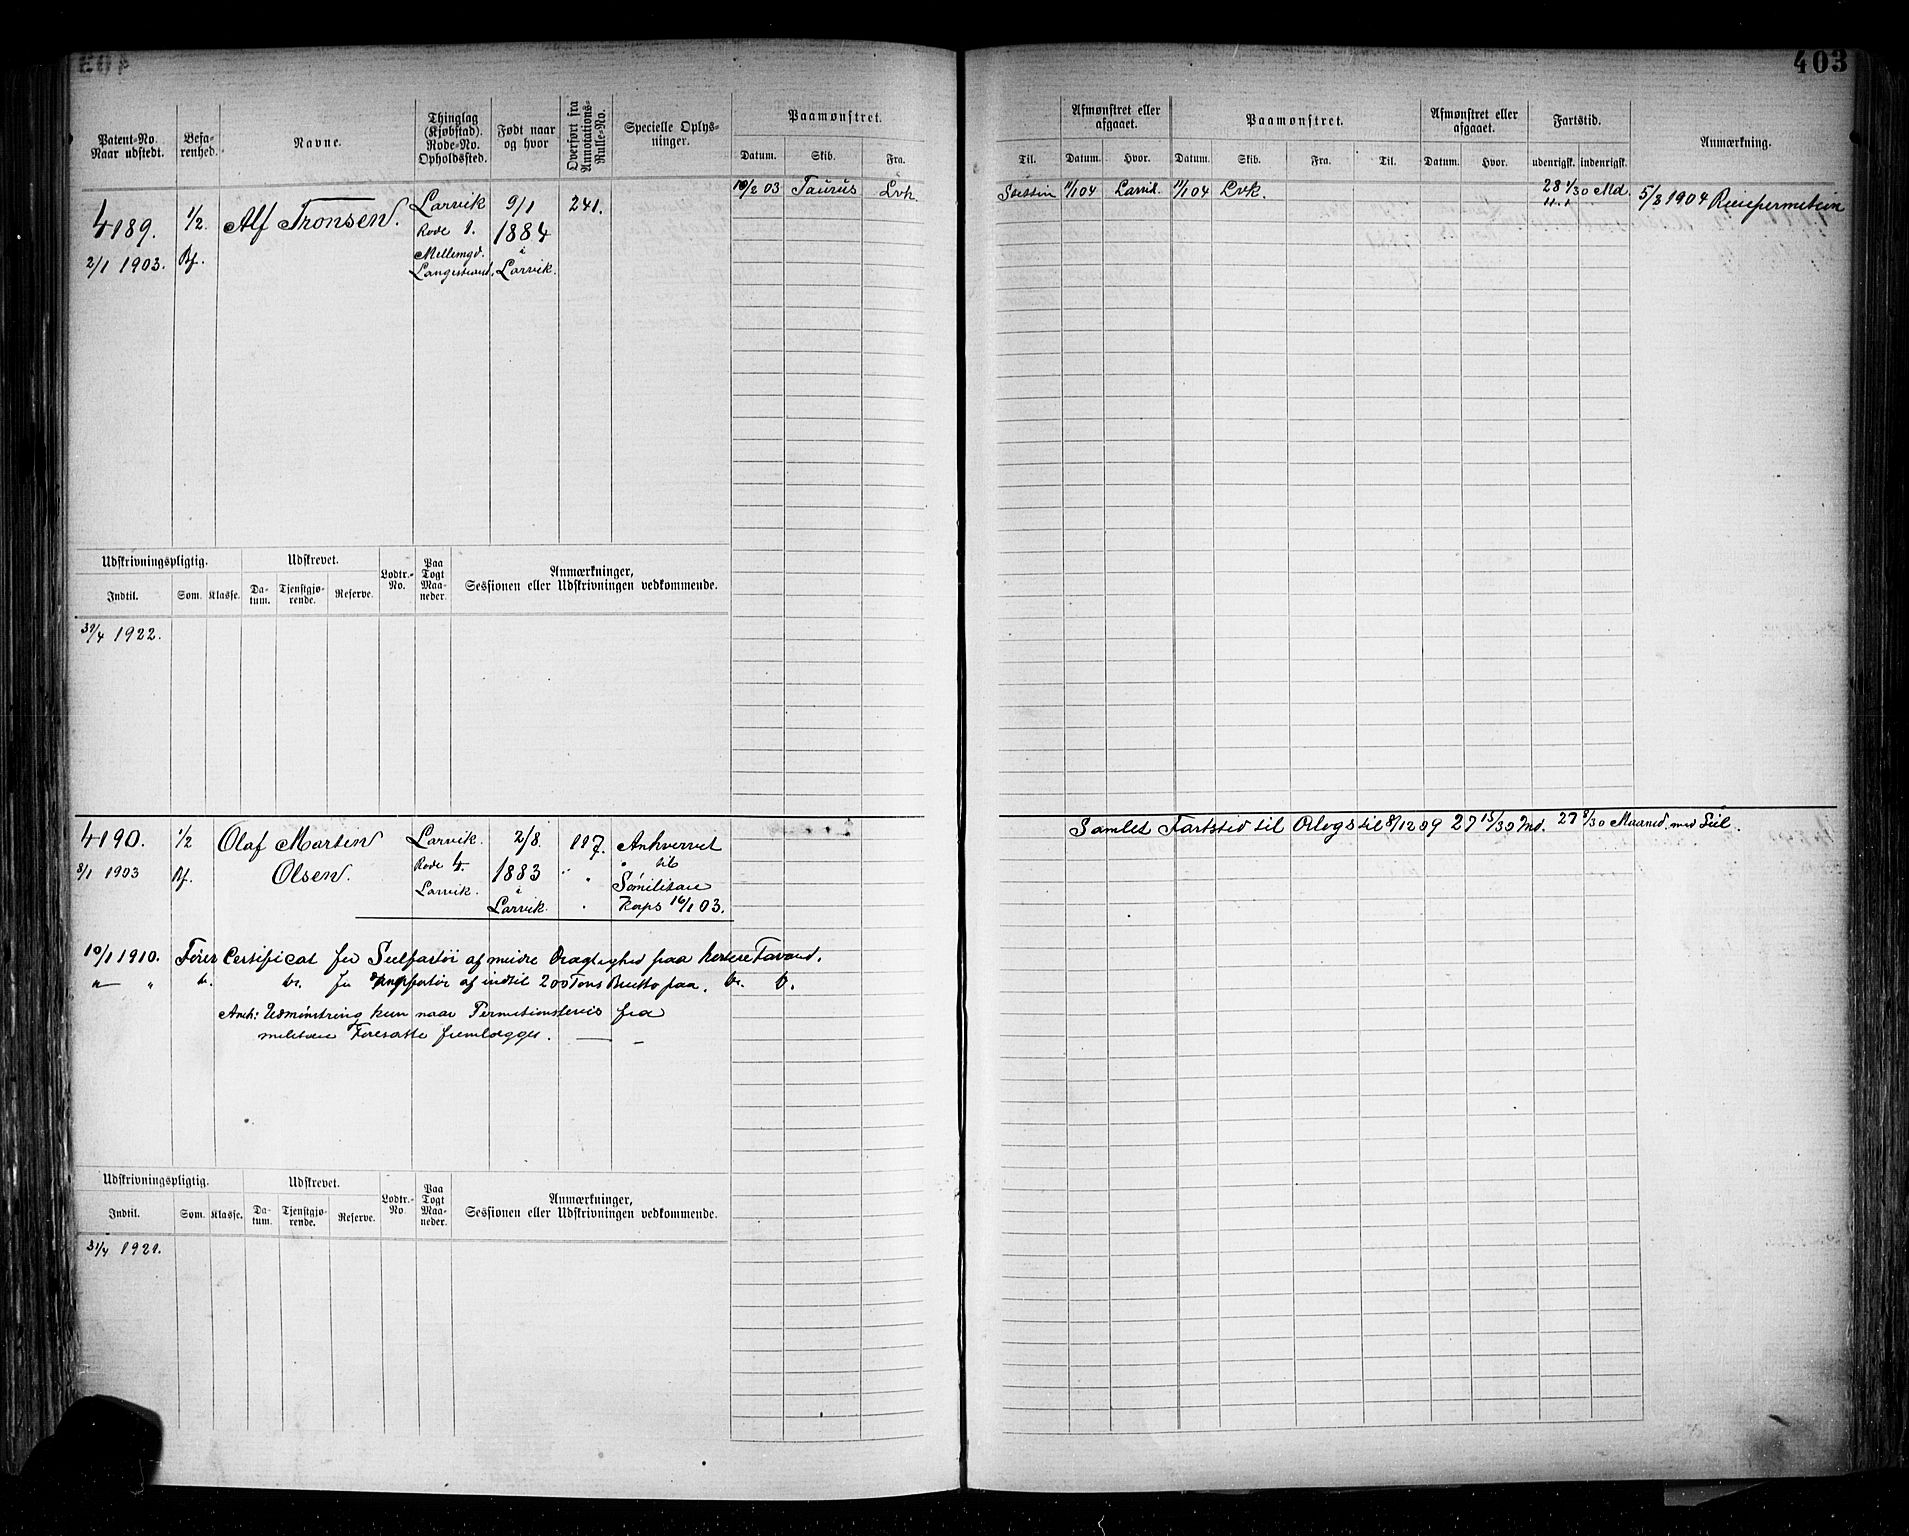 403
Patent-No. Naar udstedt.
Befa-renhed.
Navne.
Thinglag (Kjøbstad). Rode-No. Opholdssted.
Født naar og hvor
Overført fra Annotations-Rulle-No.
Specielle Oplys-ninger.
Paamønstret.
Datum. Skib. Fra.
Til.
Afmønstret eller afgaaet.
Datum. Hvor.
Paamønstret.
Datum. Skib. Fra. Til.
Afmønstret eller afgaaet.
Datum. Hvor.
Fartstid.
udenrigsk. indenrigsk.
Anmærkning.
4189. 1/2. Alf Tronsen. Larvik 9/1 241. 10/2 03 Taurus Lvk. Stettin 11/1 04 Larvik. 11/1 04 Lvk. 28 1/30 Md. 5/2 1904
Rode 1. 1884
2/1 1903. Bf. Mellemgd. i
Langestrand. Larvik.
Udskrivningspligtig. Udskrevet. Lodtr.-No. Paa Togt Maa-neder. Anmærkninger, Sessionen eller Udskrivningen vedkommende.
Indtil. Som. Klasse. Da-tum. Tjenstgjø-rende. Reserve.
31/4 1922.
4190. 1/2 Olaf Martin Larvik. 2/8. 117. Anhvervet Samlet Fartstid til Orlogs til 8/12 09 27 15/30 Md. 27 5/30 Maaned. med Seil.
8/1 1903 Bf. Olsen. Rode 4. 1883 til
Larvik. i Sømilitære
Larvik. Korps 16/1 03.
10/1 1910. Fører Certificat for Seilfartøi af mindre Drægtighed paa kortere Farvand.
— " do. do. for Dampfartøi af indtil 200 Tons Brutto paa do. do.
Anm: Udmønstring kun naar Permitionsbevis fra
militære Foresatte fremlægges. —
Udskrivningspligtig. Udskrevet. Lodtr.-No. Paa Togt Maa-neder. Anmærkninger, Sessionen eller Udskrivningen vedkommende.
Indtil. Som. Klasse. Da-tum. Tjenstgjø-rende. Reserve.
31/4 1921.